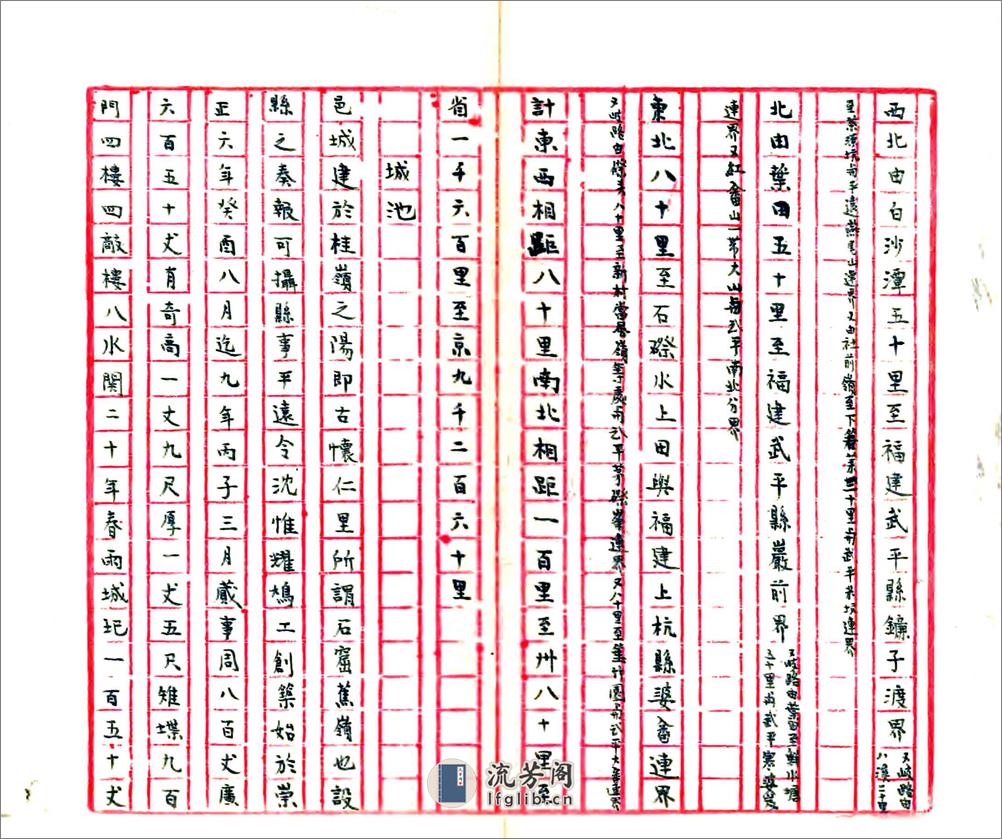 西北由白沙潭五十里至福建武平縣鐤子渡界又岐路由八溪二十里
至葉源壩与平遠燕尾山連界又由社前嶺至下 三十里与武平 壩連界
北由葉田五十里至福建武平縣巖前界又岐路由葉田至 水塘三十里与武平寒婆岌
連界又紅畬山一帶大山与武平南北分界
東北八十里至石磜水上田與福建上杭縣婆畬連界
又岐路由磜头八十里至新村當風嶺等處与武平 磜 連界又八十里至 竹園与武平大 連界
計東西相距八十里南北相距一百里至州八十里至
省一千六百里至京九千二百六十里
城池
邑城建於桂嶺之陽即古懷仁里所謂石窟蕉嶺也設
縣之奏報可攝縣事平遠令沈惟耀鳩工創築始於崇
正六年癸酉八月迄九年丙子三月蕆事周八百丈廣
六百五十丈有奇高一丈九尺厚一丈五尺雉堞九百
門四樓四敵樓八水関二十年春雨城圮一百五十丈
流芳阁
lfglib.cn